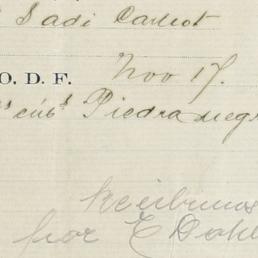 Sadi Carnot
O. D. F. Nov 17.
Piedra negr
Recibimos
por E Dohl